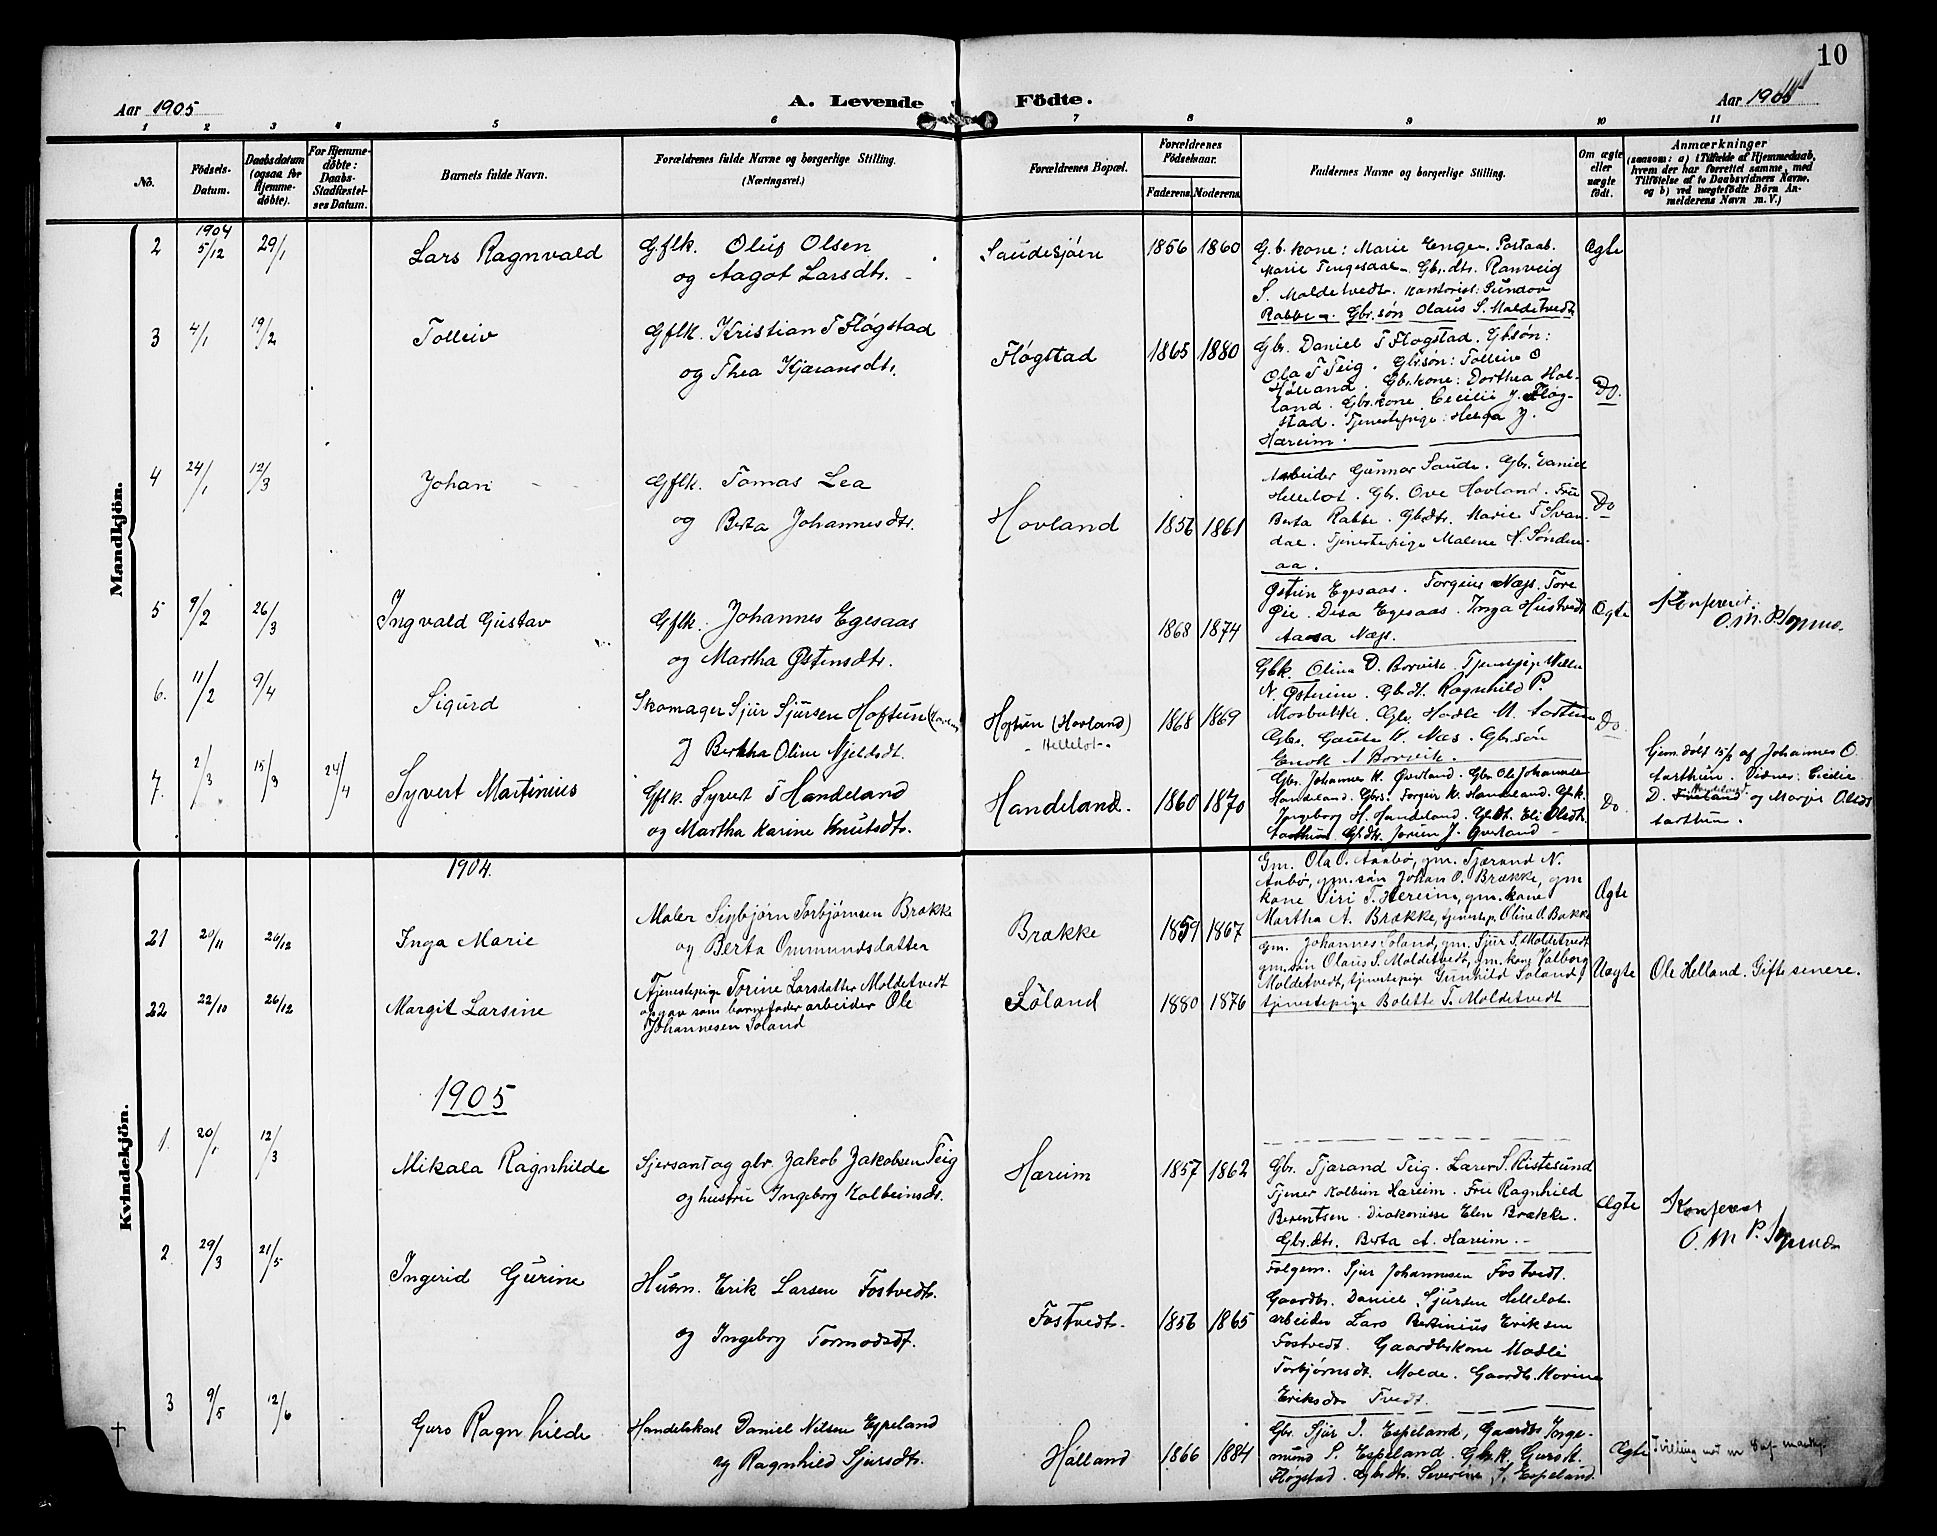 10
Aar 1905
A. Levende Födte.
Aar 1905
1 2 3 4 5 6 7 8 9 10 11
No.
Födsels-
Datum.
Daabsdatum
(ogsaa for
Hjemme-
döbte).
For Hjemme-
döbte:
Daabs-
Stadfæstel-
ses Datum.
Barnets fulde Navn.
Forældrenes fulde Navne og borgerlige Stilling.
(Næringsvei.)
Forældrenes Bopæl.
Forældrenes
Födselsaar.
Faderens. Moderens.
Faddernes Navne og borgerlige Stilling.
Om ægte
eller
uægte
födt.
Anmærkninger
(saasom: a) i Tilfælde af Hjemmedaab,
hvem der har forrettet samme, med
Tilföielse af to Daabsvidners Navne,
og b) ved uægtefödte Börn An-
melderens Navn m. V.)
Mandkjön.
2 1904 5/12 29/1 Lars Ragnvald
Gflk. Oluf Olsen
og Aagot Larsdtr.
Saudesjøen 1856 1860
G.b. kone: Marie Enge. Postaab.
Marie Tengesdal. Gbr.dtr. Ranveig
S. Moldetvedt. Kontorist: Gundov
Rabbe. Gbr.søn Olaus S. Moldetvedt
Ægte
3 4/1 19/2 Tolleiv
Gflk. Kristian T Fløgstad
og Thea Kjæransdtr.
Fløgstad 1865 1880
Gbr. Daniel T Fløgstad. Gbsøn:
Ola T Teig. Gbrsøn: Tolleiv O
Høiland. Gbr.kone: Dorthea Hol-
land. Gbr.kone Cecilie J. Fløg-
stad. Tjenestepige: Helga J.
Hæreim.
Do.
4 24/1 12/3 Johan
Gflk. Tomas Lea
og Berta Johannesdtr.
Hovland 1856 1861
Arbeider Gunnar Saude. Gbr. Daniel
Hellelot. Gbr. Ove Hovland. Fru
Berta Rabbe. Gbdtr. Marie T Svan-
dal. Tjenestepige Malene N. Sønden-
aa.
Do
5 9/2 26/3 Ingvald Gustav
Gflk. Johannes Egesaas
og Martha Østensdtr.
1868 1874
Østen Egesaas. Torgeius Næs. Tore
Øie. Disa Egesaas. Inga Hustvedt
Aasa Næs.
Ægte
Konfereret
6. 11/2 9/4 Sigurd
Skomager Sjur Sjursen Hoftun
og Bertha Oline Njeldsdt.
Hoftun (Hovland)
Hellelot
1868 1869
Gbk. Olina D. Borvik. Tjenestpige
N. Østreim. Gbdt. Ragnhild P.
Mosbakke. Gbr. Hadle M.
Gbr. Gaute Næs. Gbr.søn
Enok A Borvik.
Do.
7. 2/3 15/3 24/4 Syvert Martinius
Gflk. Syvert T Handeland
og Martha Karine Knutsdtr.
Handeland. 1860 1870
Gbr. Johannes K. Øverland. Gbr. Ole Johannesen
Handeland. Gbrs. Torgeir K. Handeland. Gbk.
Ingeborg H. Handeland. Gbdt. Eli Olsdt.
Aarthun. Gbdtr. Jorun J. Øverland
Do.
Hjem.døbt 15/3 af Johannes O.
Aarthun. Vidner: Cecilie
D. og Margit Olsdt
Aarthun.
Kvindekjön.
1904.
21 20/11 26/12 Inga Marie
Maler Sigbjørn Torbjørnsen Brække
og Berta Ommundsdatter
Brække 1859 1867
Gm. Ola O. Aabø, gm. Tjærand N.
Aabø, gm.søn Johan O. Brække, gm
kone Siri T. Hereim, gm.kone
Martha A. Brække, tjenestep. Oline O. Bakke
Ægte
22 22/10 26/12 Margit Larsine
Tjenestepige Torine Larsdatter Moldetvedt
opgav som barnefader arbeider Ole
Johannesen Soland
Søland 1880 1876
gm. Johannes Soland, gm. Sjur S. Moldetvedt
gm.søn Olaus S. Moldetvedt, gm. kone Valborg
Moldetvedt, tjenestepige Gunhild Soland
tjenestepige Bolette T. Moldetvedt
Uægte
Ole Helland. Gifte senere.
1905
1. 20/1 12/3 Mikala Ragnhilde
Sjersant og gbr. Jakob Jakobsen Teig
og hustru Ingeborg Kolbeinsdtr.
Hæreim 1857 1862
Gbr. Tjærand Teig. Lærer S. Ristesund
Tjener Kolbein Hæreim. Fru Ragnhild
Berentsen. Diakonisse Elen Brække.
Gbr.dtr. Berta A. Hæreim.
Ægte
Konfereret
2. 29/3 21/5 Ingerid Gurine
Husm. Erik Larsen Fostvedt.
og Ingeborg Tormodsdt.
Fostvedt. 1856 1865
Folgem. Sjur Johannesen Fostvedt.
Gaardbr. Daniel Sjursen Hellelot.
arbeider Lars Bertinius Eriksen
Fostvedt. Gaardbskone Madli
Torbjørnsdt. Molde. Gaardb.
Eriksdtr Tvedt.
3 9/5 12/6 Guro Ragnhilde
Handelskarl Daniel Nilsen Espeland
og Ragnhild Sjursdtr.
Halland 1866 1884
Gbr. Sjur I. Espeland, Gaardbr Inge-
mund S. Espeland. Gbk. Guro
Fløgstad. Gbrdtr. Severine S. Espeland.
Ægte
Tvilling